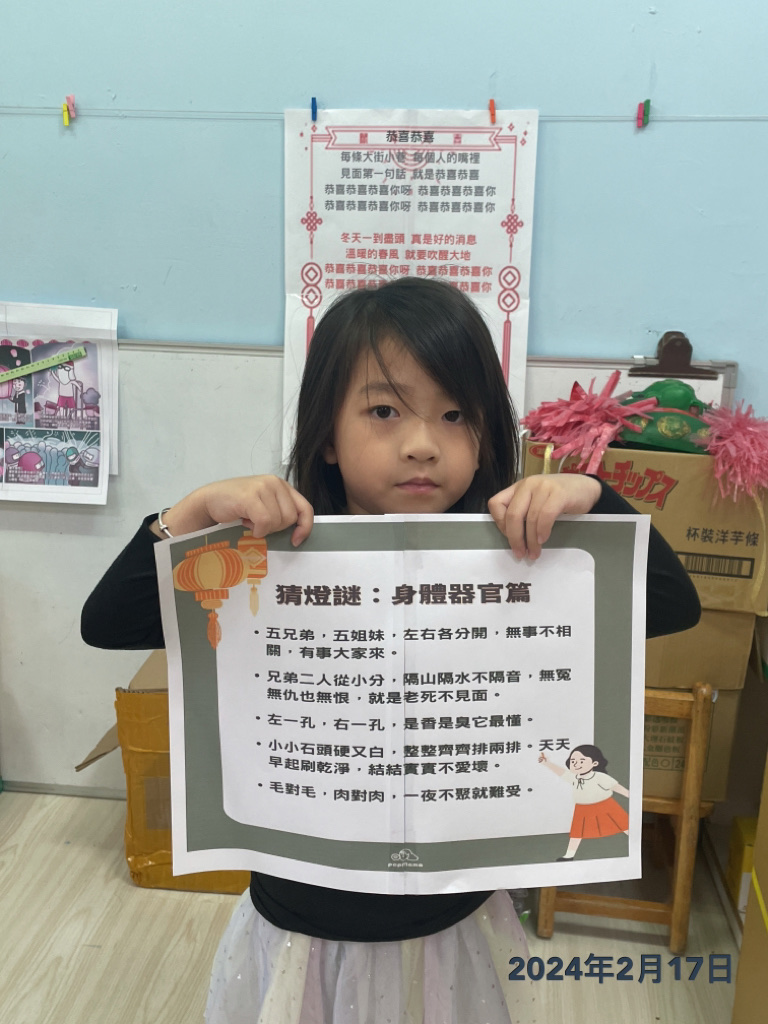 恭喜恭喜
每條大街小巷 每個人的嘴裡
見面第一句話 就是恭喜恭喜
恭喜恭喜恭喜你呀 恭喜恭喜恭喜你
恭喜恭喜恭喜你呀 恭喜恭喜恭喜你
冬天一到盡頭 真是好的消息
溫暖的春風 就要吹醒大地
恭喜恭喜恭喜你呀 恭喜恭喜恭喜你
恭喜恭喜恭喜你呀 恭喜恭喜恭喜你
杯裝洋芋條
猜燈謎：身體器官篇
• 五兄弟，五姐妹，左右各分開，無事不相
關，有事大家來。
• 兄弟二人從小分，隔山隔水不隔音，無冤
無仇也無恨，就是老死不見面。
• 左一孔，右一孔，是香是臭它最懂。
• 小小石頭硬又白，整整齊齊排兩排。天天
早起刷乾淨，結結實實不愛壞。
• 毛對毛，肉對肉，一夜不聚就難受。
2024年2月17日